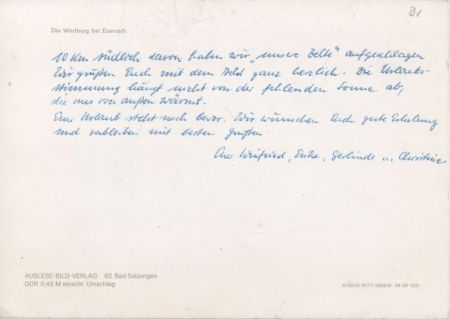 Die Wartburg bei Eisenach
10 km südlich davon haben wir „unser Zelte" aufgeschlagen
Wir grüßen Euch mit dem Bild ganz herzlich. Die Urlaubs-
stimmung hängt nicht von der fehlenden Sonne ab,
die uns von außen wärmt.
Eure Urlaub steht noch bevor. Wir wünschen Euch gute Erholung
und verbleiben mit besten Grüßen
Winfried, Gerlinde u. Christine
AUSLESE-BILD-VERLAG 62 Bad Salzungen
DDR 0,45 M einschl. Umschlag